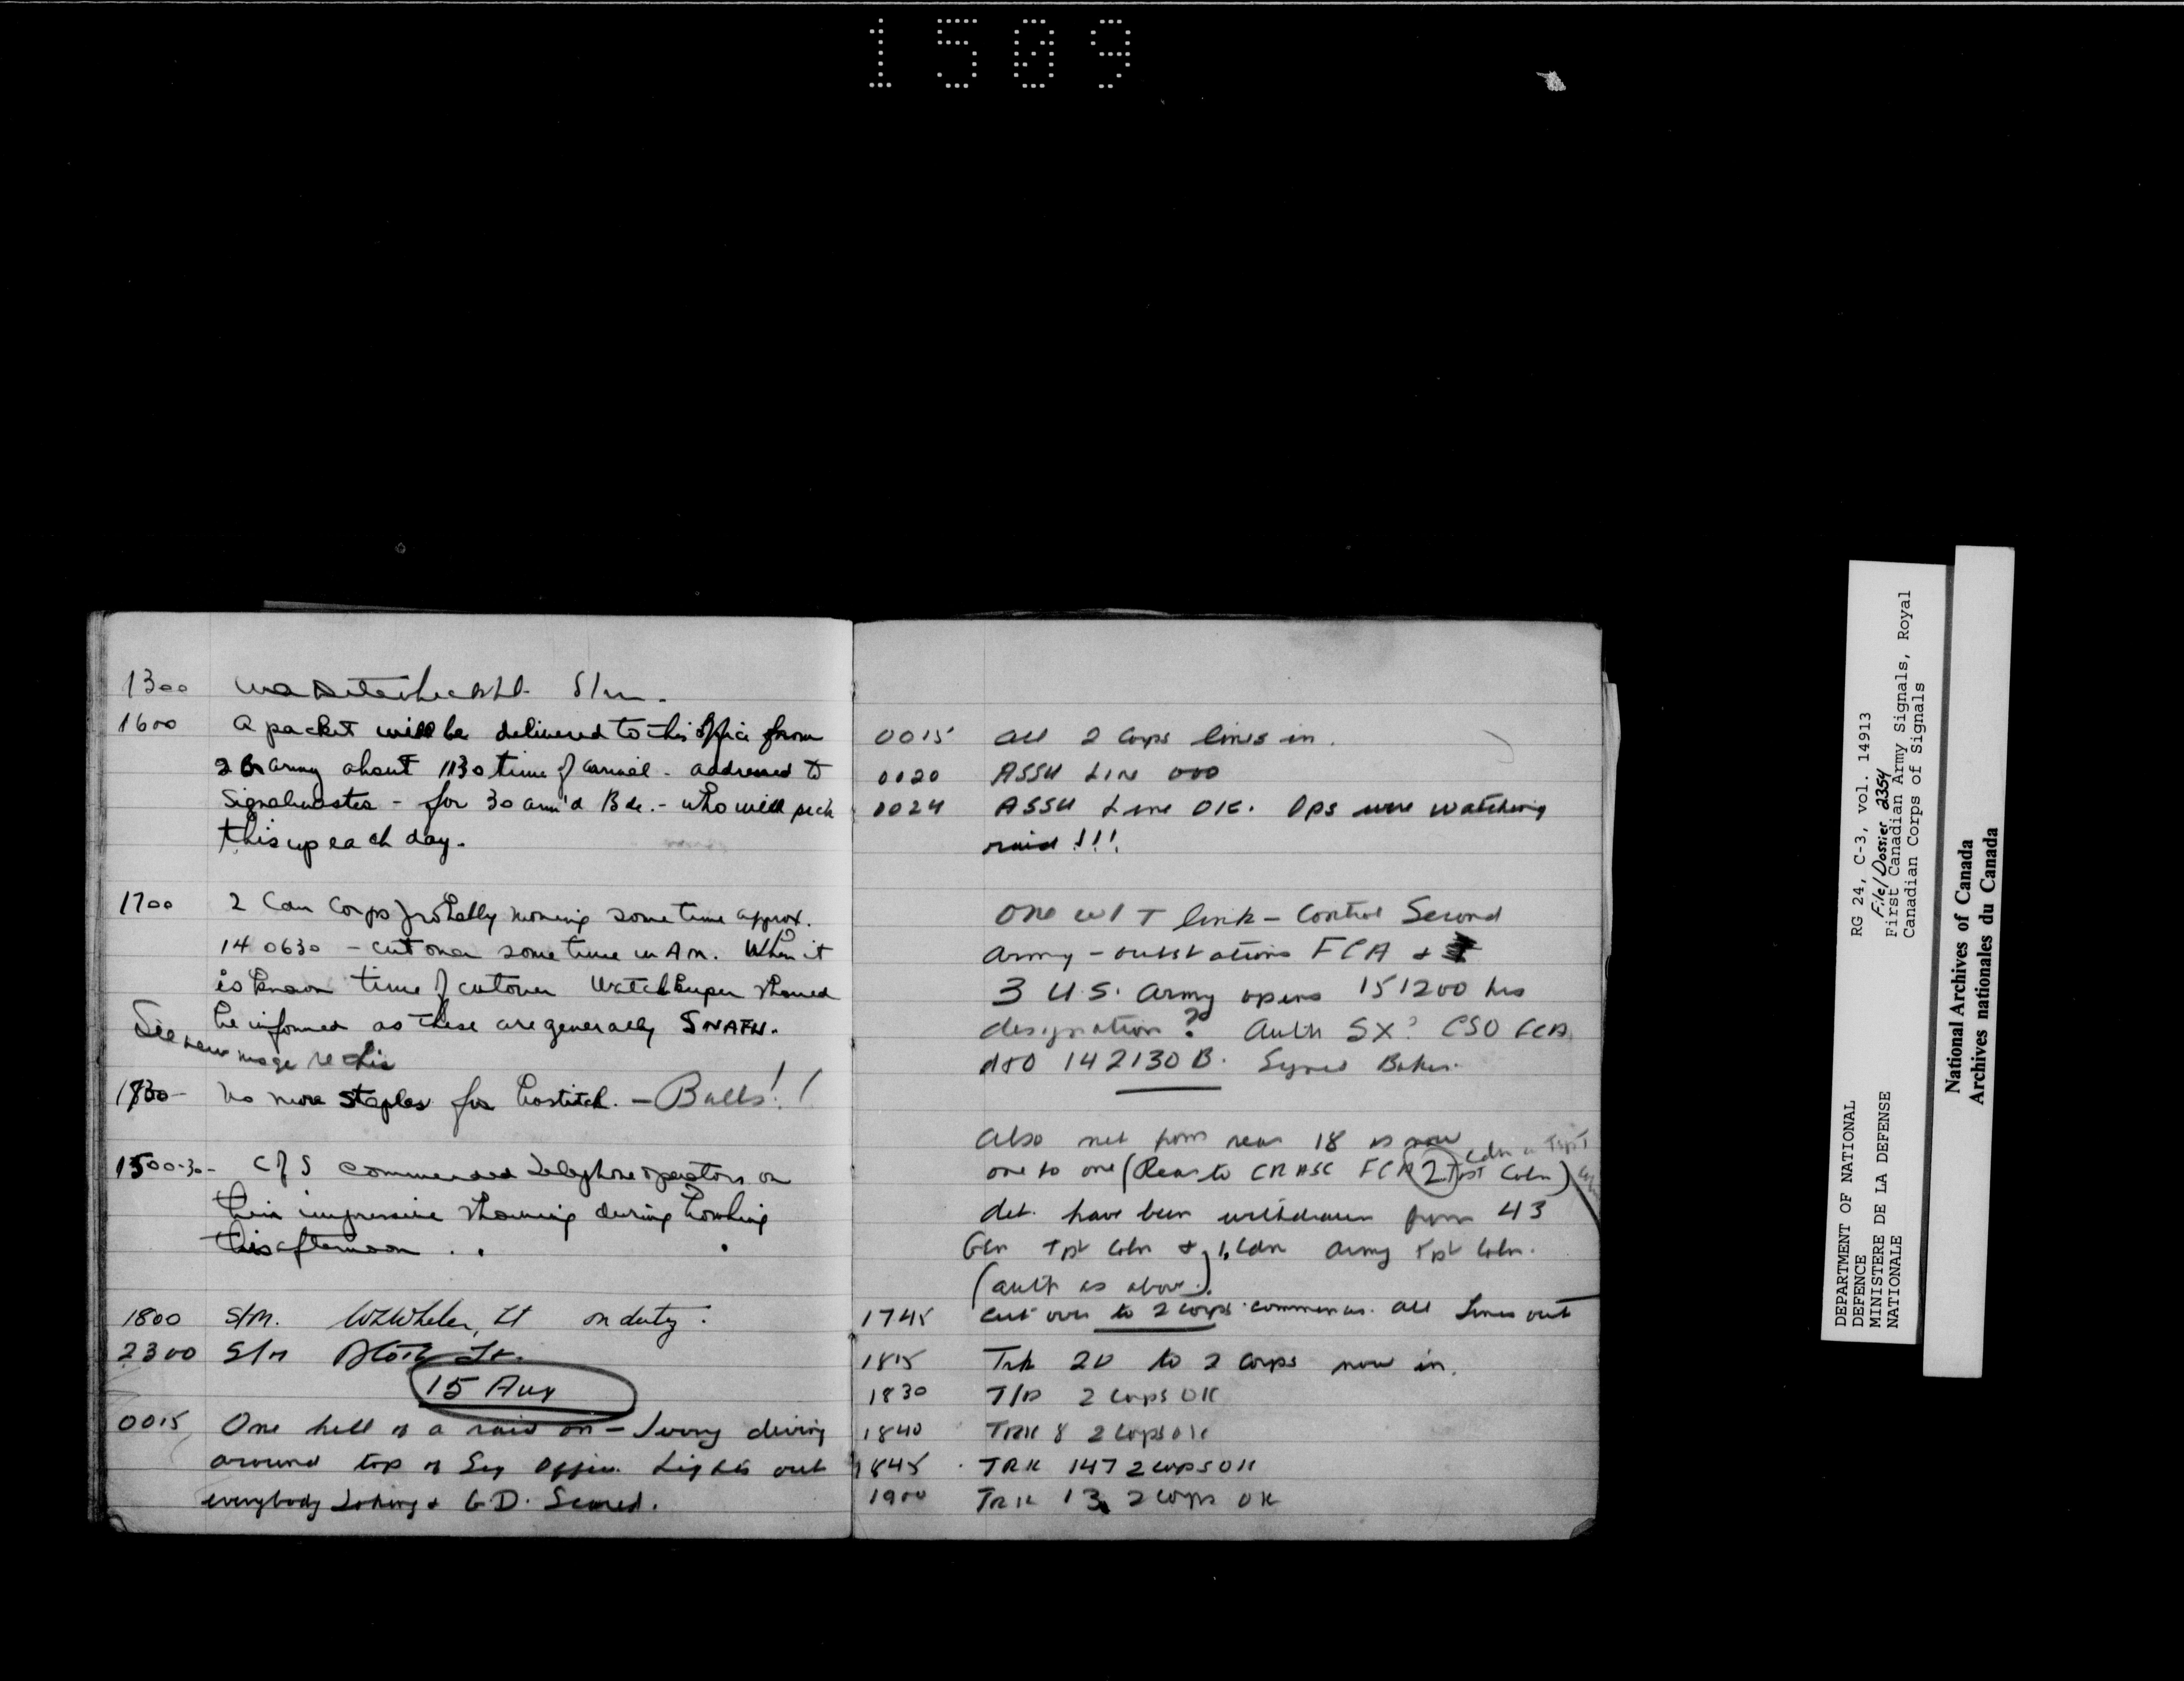 1509
1300 S/m.
1600 A packet will be delivered to this office from
2 Br army about 1130 time of arrival - addressed to
Signalmaster - for 30 arm'd Bde. - who will pick
this up each day.
1700 2 Can Corps probably moving some time approx.
14 0630 - cut over some time in AM. When it
is known time of cutover Watchkeeper should
be informed as these are generally SNAFU.
See new msge re this
1730- No more staples for hostitch. - Balls!!
1500-30- C of S commended telephone operators on
their impressive showing during bombing
this afternoon . .
1800 S/M. Lt on duty.
2300 S/M Lt.
15 Aug
0015 One hell of a raid on - Jerry diving
around top of Sig Office. Lights out
everybody & G.D. Scared.
0015 all 2 Corps lines in.
0020 ASSU Line 000
0024 ASSU Line OK. Ops were watching
raid !!!
One W/T link - Control Second
Army - outstations FCA &
3 U.S. Army opens 151200 hrs
designation? Auth SX? CSO FCA
dtd 142130B. Signed Baker.
Also net from rear 18 is now
one to one (Rear to CRASC FCA 2 Tpt Coln)
det. have been withdrawn from 43
Gen Tpt Coln & 1 Cdn Army Tpt Coln.
(auth as above).
1745 Cut over to 2 Corps commences. All Lines out
1815 Trk 20 to 2 Corps now in.
1830 T/P 2 Corps OK
1840 TRK 8 2 Corps OK
1845 TRK 147 2 Corps OK
1900 TRK 13 2 Corps OK
DEPARTMENT OF NATIONAL
DEFENCE
MINISTERE DE LA DEFENSE
NATIONALE
RG 24, C-3, vol. 14913
File/Dossier 2354
First Canadian Army Signals, Royal
Canadian Corps of Signals
National Archives of Canada
Archives nationales du Canada